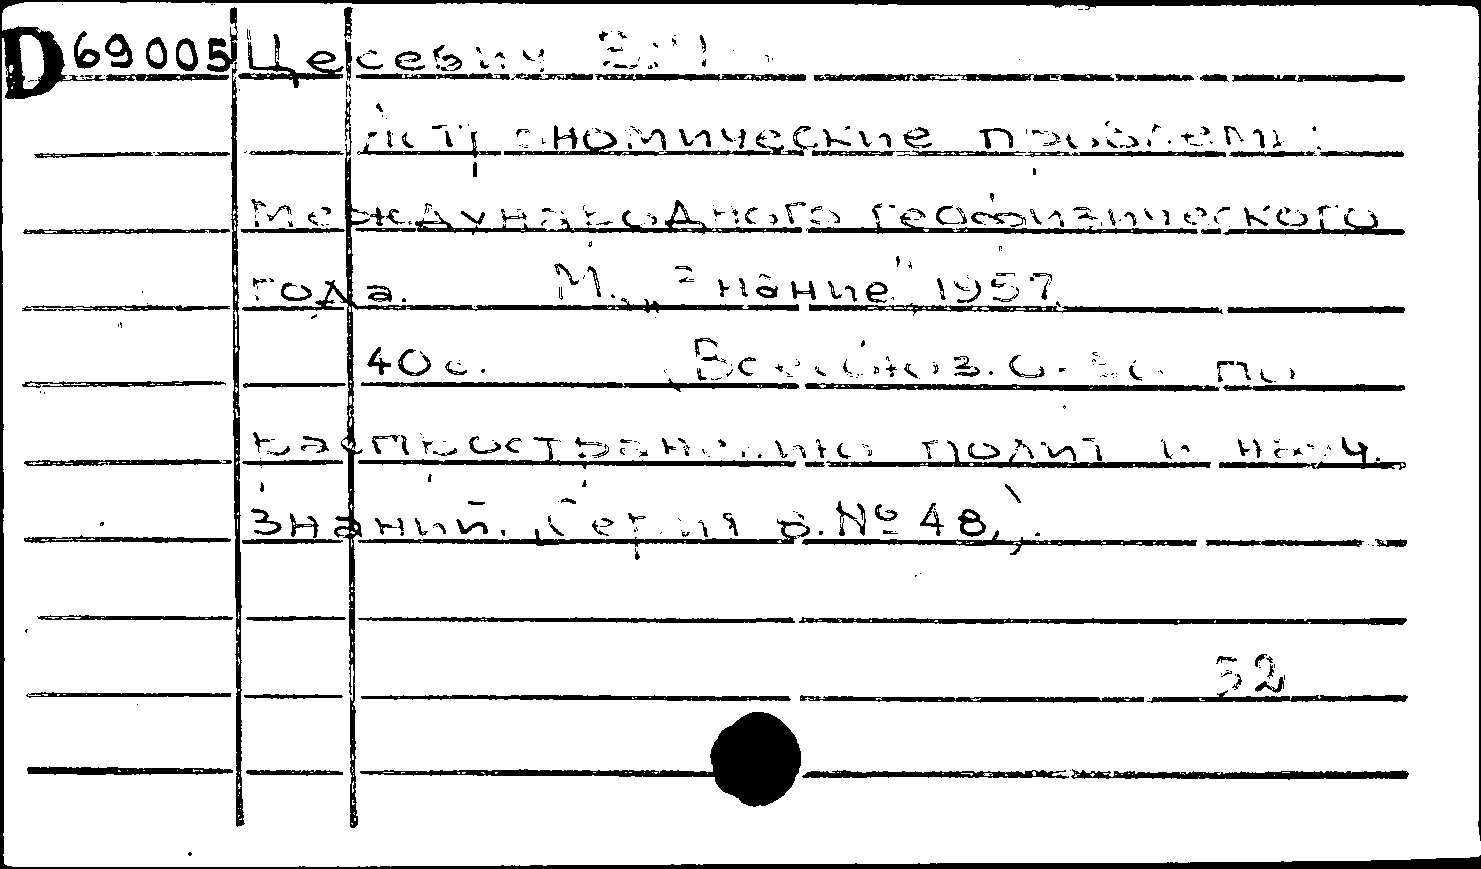 D 69005 Цесевич В.П.
Астрономические проблемы
Международного геофизического
года. М., "Знание", 1957.
40 с. (Всесоюз. о-во по
распространению полит и науч.
знаний. Серия 8. № 48,).
32